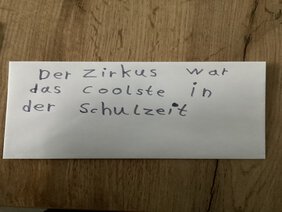 Der Zirkus war
das coolste in
der Schulzeit